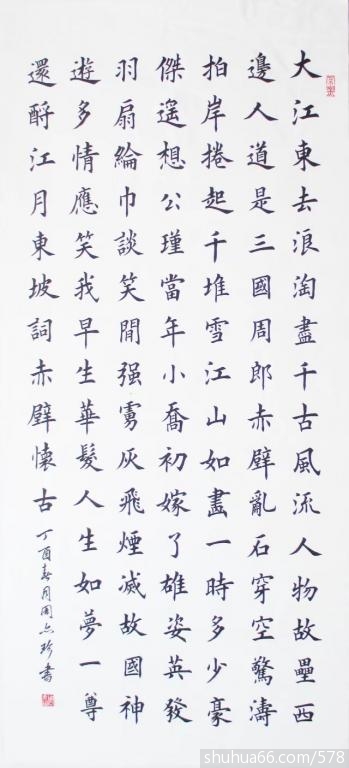 大江東去浪淘盡千古風流人物故壘西
邊人道是三國周郎赤壁亂石穿空驚濤
拍岸捲起千堆雪江山如畫一時多少豪
傑遥想公瑾當年小喬初嫁了雄姿英發
羽扇綸巾談笑閒强虜灰飛煙滅故國神
遊多情應笑我早生華髮人生如夢一尊
還酹江月東坡詞赤壁懷古
丁酉春月周珍書
shuhua66.com/578